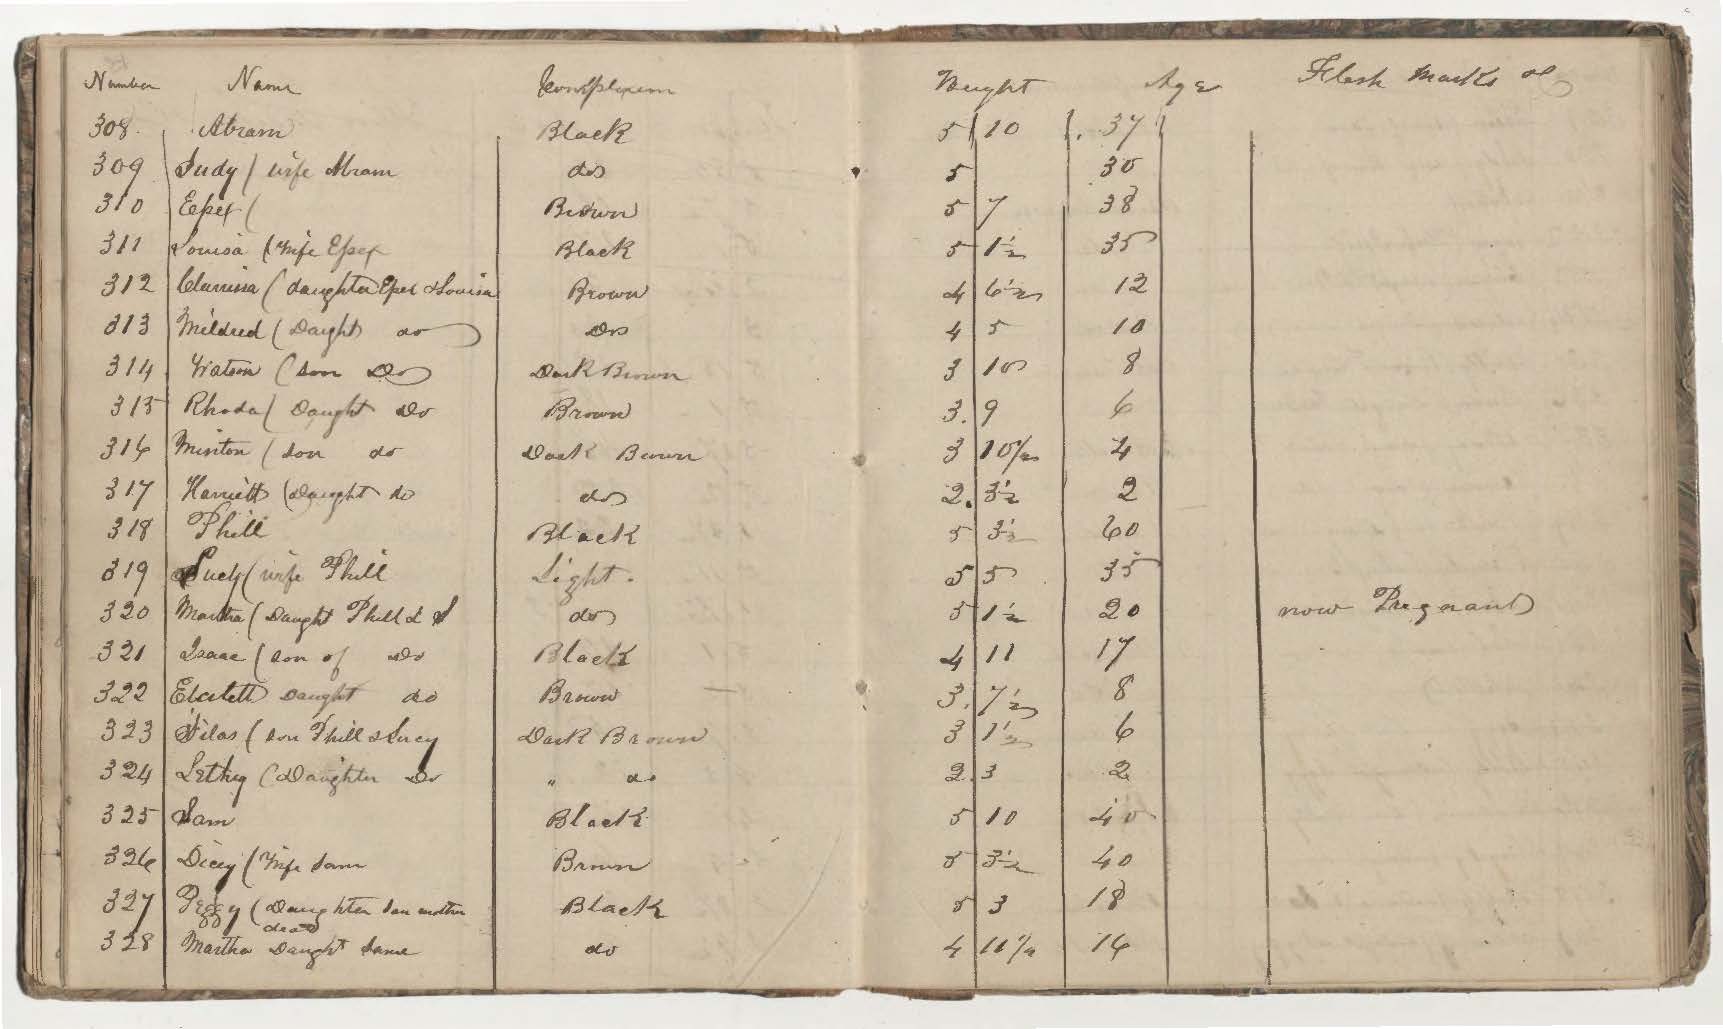 Number Name Complexion Height Age Flesh Marks &c
308 Abram Black 5 10 37
309 Judy ( wife Abram do 5 30
310 Epex ( Brown 5 7 38
311 Louisa ( Wife Epex Black 5 1½ 35
312 Clarrissa ( daughter Epex & Louisa Brown 4 6½ 12
313 Mildred ( Daught do Do 4 5 10
314 Watson ( son Do Dark Brown 3 10 8
315 Rhoda ( Daught Do Brown 3. 9 6
316 Minton ( son do Dark Brown 3 10½ 4
317 Harriett ( Daught do do 2. 3½ 2
318 Phill Black 5 3½ 60
319 Lucy ( wife Phill Light. 5 5 35
320 Martha ( Daught Phill & S do 5 1½ 20 now Pregnant
321 Isaac ( son of Do Black 4 11 17
322 Daught do Brown 3. 7½ 8
323 Silas ( son Phill & Lucy Dark Brown 3 1½ 6
324 Lethey ( Daughter Do " do 2. 3 2
325 Sam Black 5 10 40
326 Dicey ( Wife Sam Brown 5 3½ 40
327 Peggy ( Daughter Sam mother dead Black 5 3 18
328 Martha Daught Same do 4 11½ 16